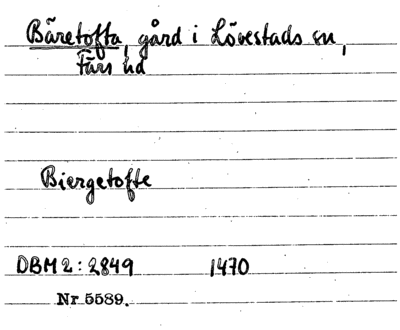 Bäretofta, gård i Lövestads sn,
Färs hd
Biergetofte
DBM 2: 2849 1470
Nr 5589.